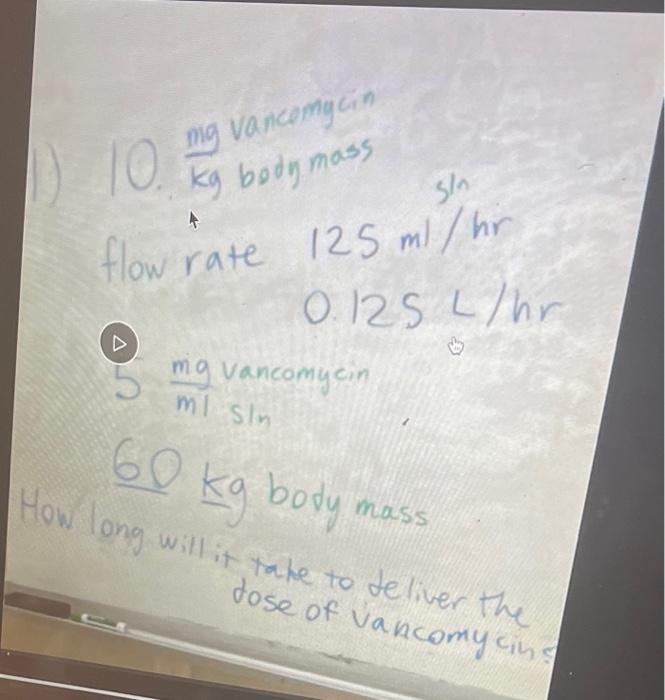 1) 10. mg vancomycin
kg body mass
flow rate 125 ml sln/hr
0.125 L/hr
5 mg vancomycin
ml sln
60 kg body mass
How long will it take to deliver the
dose of vancomycin?